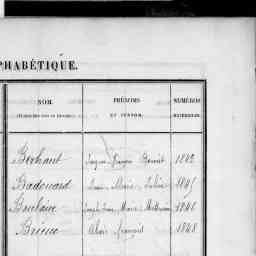 PHABÉTIQUE.
NOM. PRÉNOMS ET SURNOM. NUMÉROS
Berhaut Jacques François Benoit 1842
Badouard Louis Marie Julien 1845
Boulaire Joseph Jean Marie Mathurin 1846
Brieuc Alexis François 1848